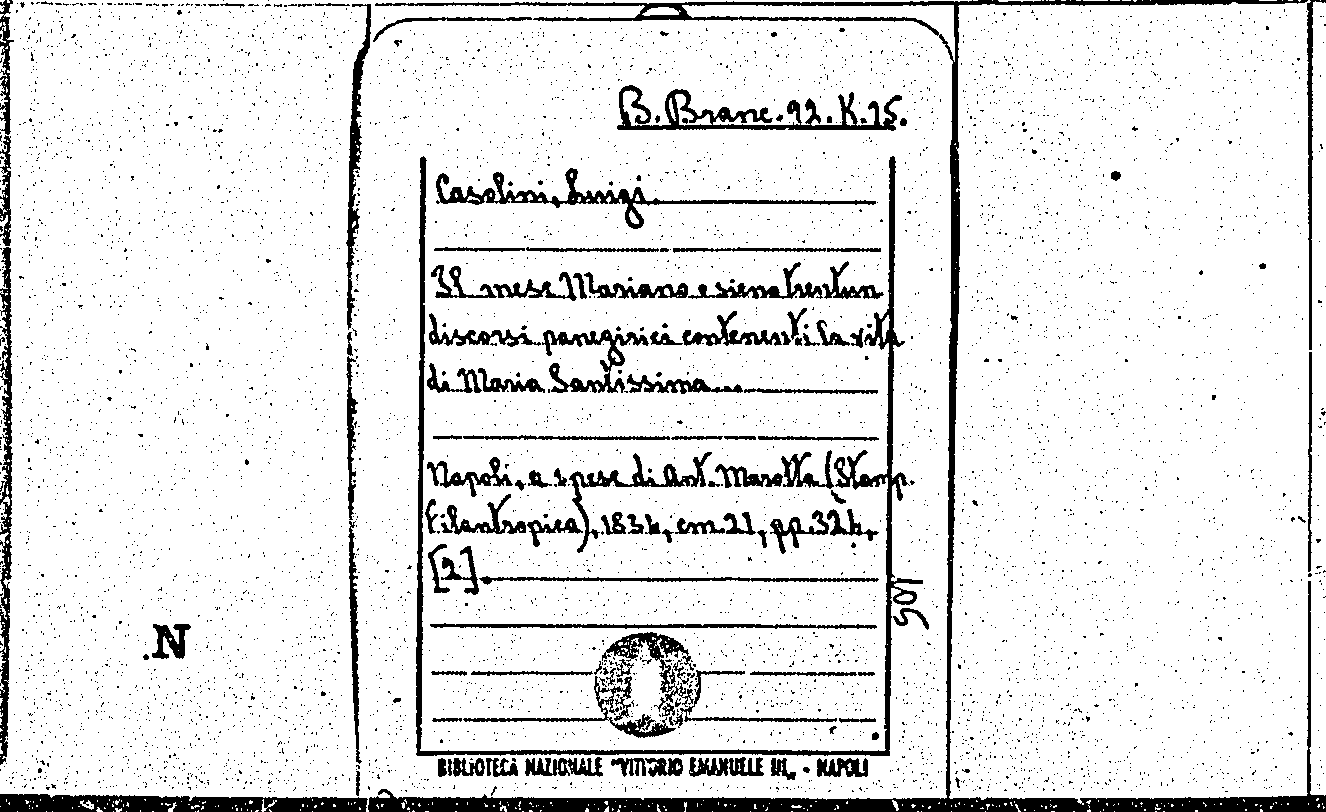 B. Branc. 92. K. 15.
Casolini, Luigi.
Il mese Mariano o siena trentun
discorsi panegirici contenenti la vita
di Maria Santissima...
Napoli, a spese di Ant. Marotta (Stamp.
Filantropica), 1834, cm. 21, pp. 324,
[2].
105
.N
BIBLIOTECA NAZIONALE "VITTORIO EMANUELE III„ - NAPOLI